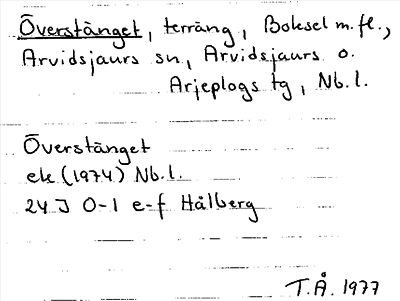 Överstånget, terräng, Boksel m.fl.,
Arvidsjaurs sn, Arvidsjaurs o.
Arjeplogs tg, Nb.l.
Överstånget
ek (1974) Nb.l.
24J 0-1 e-f Hålberg
T.Å. 1977